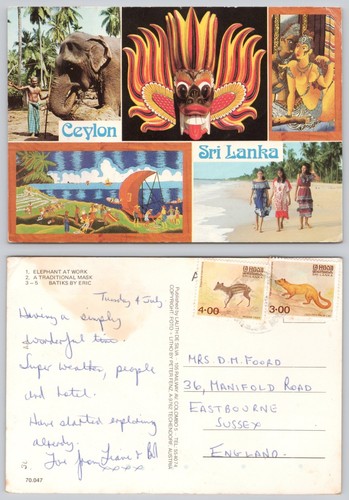 Ceylon
Sri Lanka
1. ELEPHANT AT WORK
2. A TRADITIONAL MASK
3–5 BATIKS BY ERIC
Tuesday 4 July
Having a simply
wonderful time.
Super weather, people
and hotel.
Have started exploring
already.
Love from
x o x o x
70.047
COLOMBO 5
COPYRIGHT FOTO
AUSTRIA
4·00
3·00
MRS D.M. FOORD
36, MANIFOLD ROAD
EASTBOURNE
SUSSEX
ENGLAND.